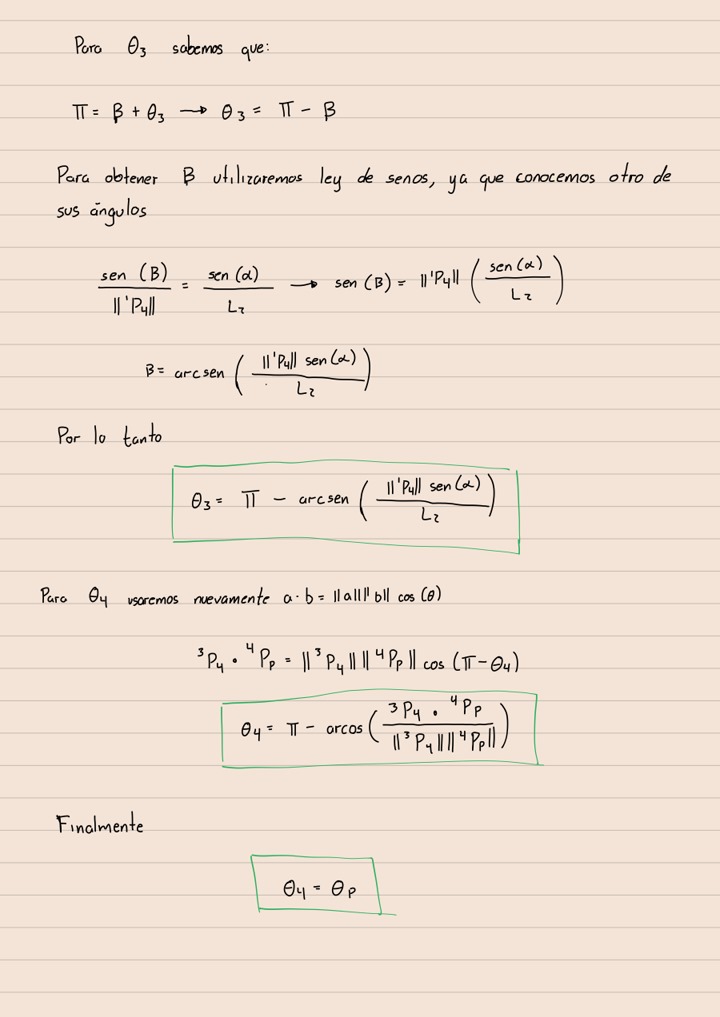 Para θ₃ sabemos que:
π = β + θ₃ → θ₃ = π - β
Para obtener β utilizaremos ley de senos, ya que conocemos otro de
sus ángulos
sen (β) / ||¹P₄|| = sen (α) / L₂ → sen (β) = ||¹P₄|| ( sen (α) / L₂ )
β = arcsen ( ||¹P₄|| sen (α) / L₂ )
Por lo tanto
θ₃ = π - arcsen ( ||¹P₄|| sen (α) / L₂ )
Para θ₄ usaremos nuevamente a · b = ||a|| ||b|| cos (θ)
³P₄ · ⁴Pₚ = ||³P₄|| ||⁴Pₚ|| cos (π-θ₄)
θ₄ = π - arcos ( ³P₄ · ⁴Pₚ / ||³P₄|| ||⁴Pₚ|| )
Finalmente
θ₄ = θₚ